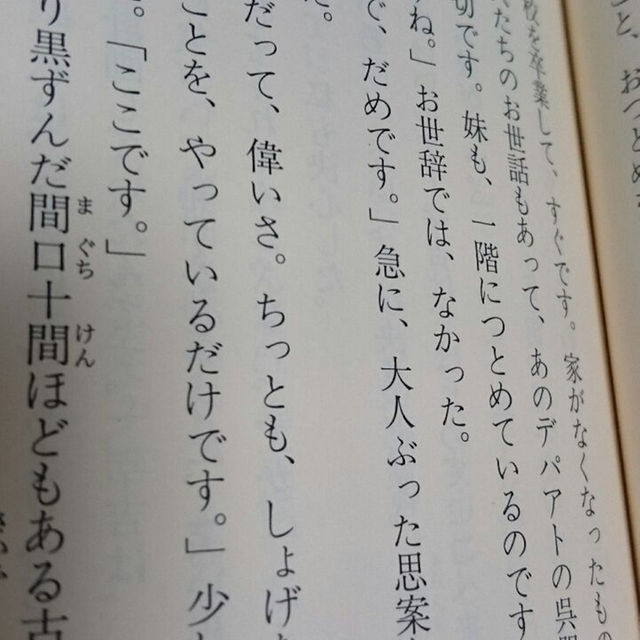 と、おつとめ
校を卒業して、すぐです。家がなくなったもの
たちのお世話もあって、あのデパアトの呉
切です。妹も、一階につとめているのです
ね。」お世辞では、なかった。
で、だめです。」急に、大人ぶった思案
た。
だって、偉いさ。ちっとも、しょげ
ことを、やっているだけです。」少
。「ここです。」
り黒ずんだ間口十間ほどもある古
まぐち けん